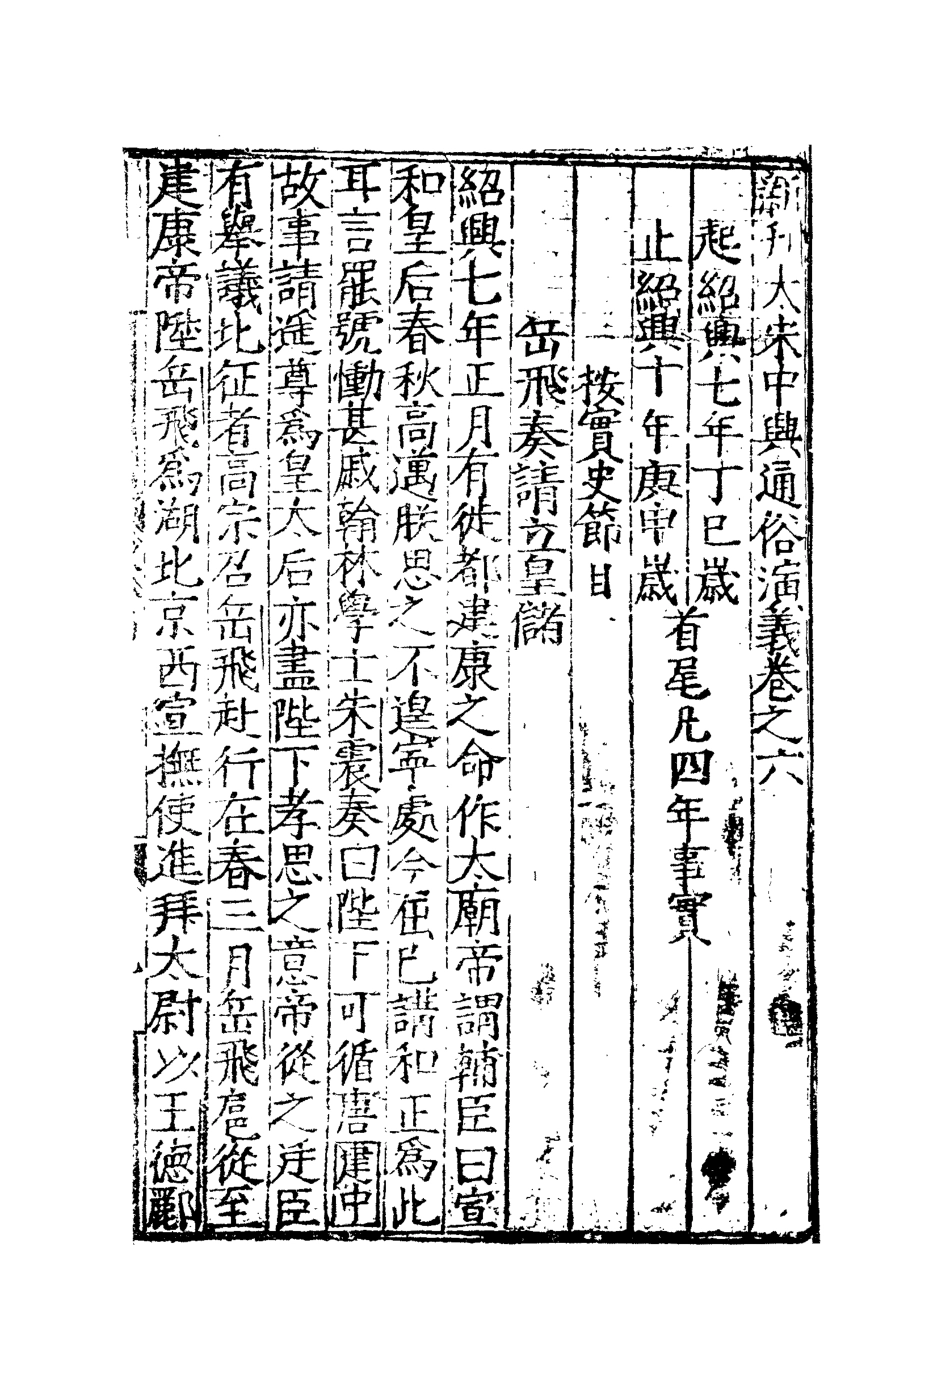 新刋大宋中興通俗演義卷之六
起紹興七年丁巳歲
止紹興十年庚申歲
首尾凡四年事實
按實史節目
岳飛奏請立皇儲
紹興七年正月有徙都建康之命作太廟帝謂輔臣曰宣
和皇后春秋高邁朕思之不遑寧處今在已講和正爲此
耳言罷號慟甚戚翰林學士朱震奏曰陛下可循唐建中
故事請遥尊爲皇太后亦盡陛下孝思之意帝從之廷臣
有舉議北征者高宗召岳飛赴行在春三月岳飛扈從至
建康帝陞岳飛爲湖北京西宣撫使進拜太尉以王德酈